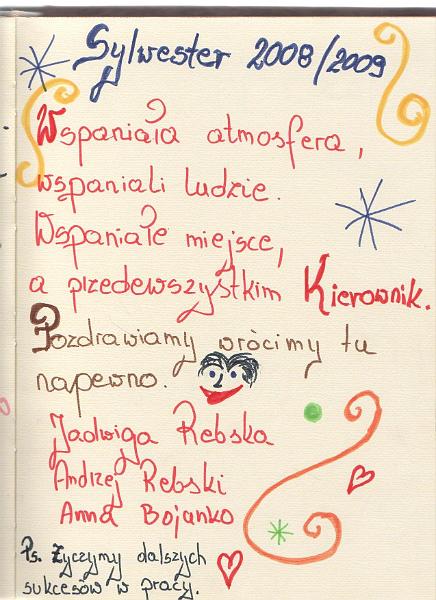 Sylwester 2008/2009
Wspaniała atmosfera,
wspaniali ludzie.
Wspaniałe miejsce,
a przedewszystkim Kierownik.
Pozdrawiamy wrócimy tu
napewno.
Jadwiga Rebska
Andrzej Rebski
Anna Bojanko
Ps. Życzymy dalszych
sukcesów w pracy.